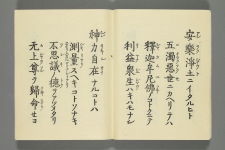 安樂淨土ニイタルヒト
五濁惡世ニカヘリテハ
釋迦牟尼佛ノコトクニテ
利益衆生ハキハモナシ
神力自在ナルコトハ
測量スヘキコトソナキ
不思議ノ德ヲアツメタリ
无上尊ヲ歸命セヨ